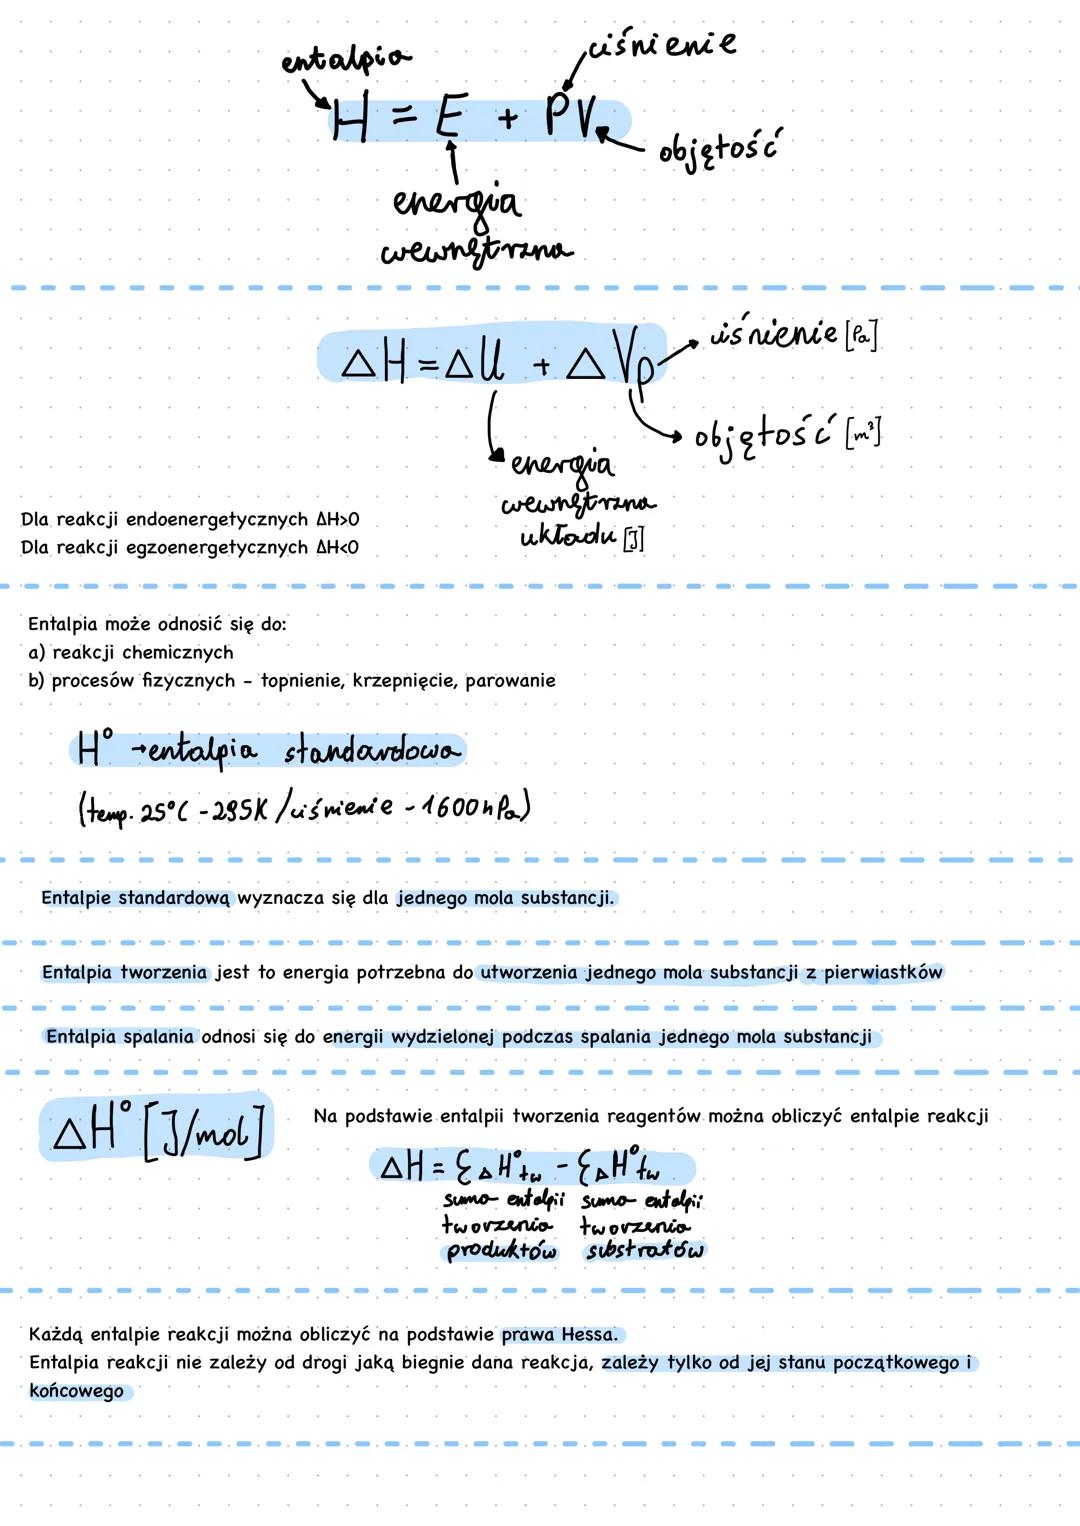 entalpia
ciśnienie
H = E + PV
objętość
energia
wewnętrzna
ΔH = ΔU + ΔVp
ciśnienie [Pa]
objętość [m³]
energia
wewnętrzna
układu [J]
Dla reakcji endoenergetycznych ΔH>0
Dla reakcji egzoenergetycznych ΔH<0
Entalpia może odnosić się do:
a) reakcji chemicznych
b) procesów fizycznych - topnienie, krzepnięcie, parowanie
H° →entalpia standardowa
(temp. 25°C - 295K / ciśnienie - 1600hPa)
Entalpie standardową wyznacza się dla jednego mola substancji.
Entalpia tworzenia jest to energia potrzebna do utworzenia jednego mola substancji z pierwiastków
Entalpia spalania odnosi się do energii wydzielonej podczas spalania jednego mola substancji
ΔH° [J/mol]
Na podstawie entalpii tworzenia reagentów można obliczyć entalpie reakcji
ΔH = ΣΔH°tw - ΣΔH°tw
suma entalpii suma entalpii
tworzenia tworzenia
produktów substratów
Każdą entalpie reakcji można obliczyć na podstawie prawa Hessa.
Entalpia reakcji nie zależy od drogi jaką biegnie dana reakcja, zależy tylko od jej stanu początkowego i
końcowego